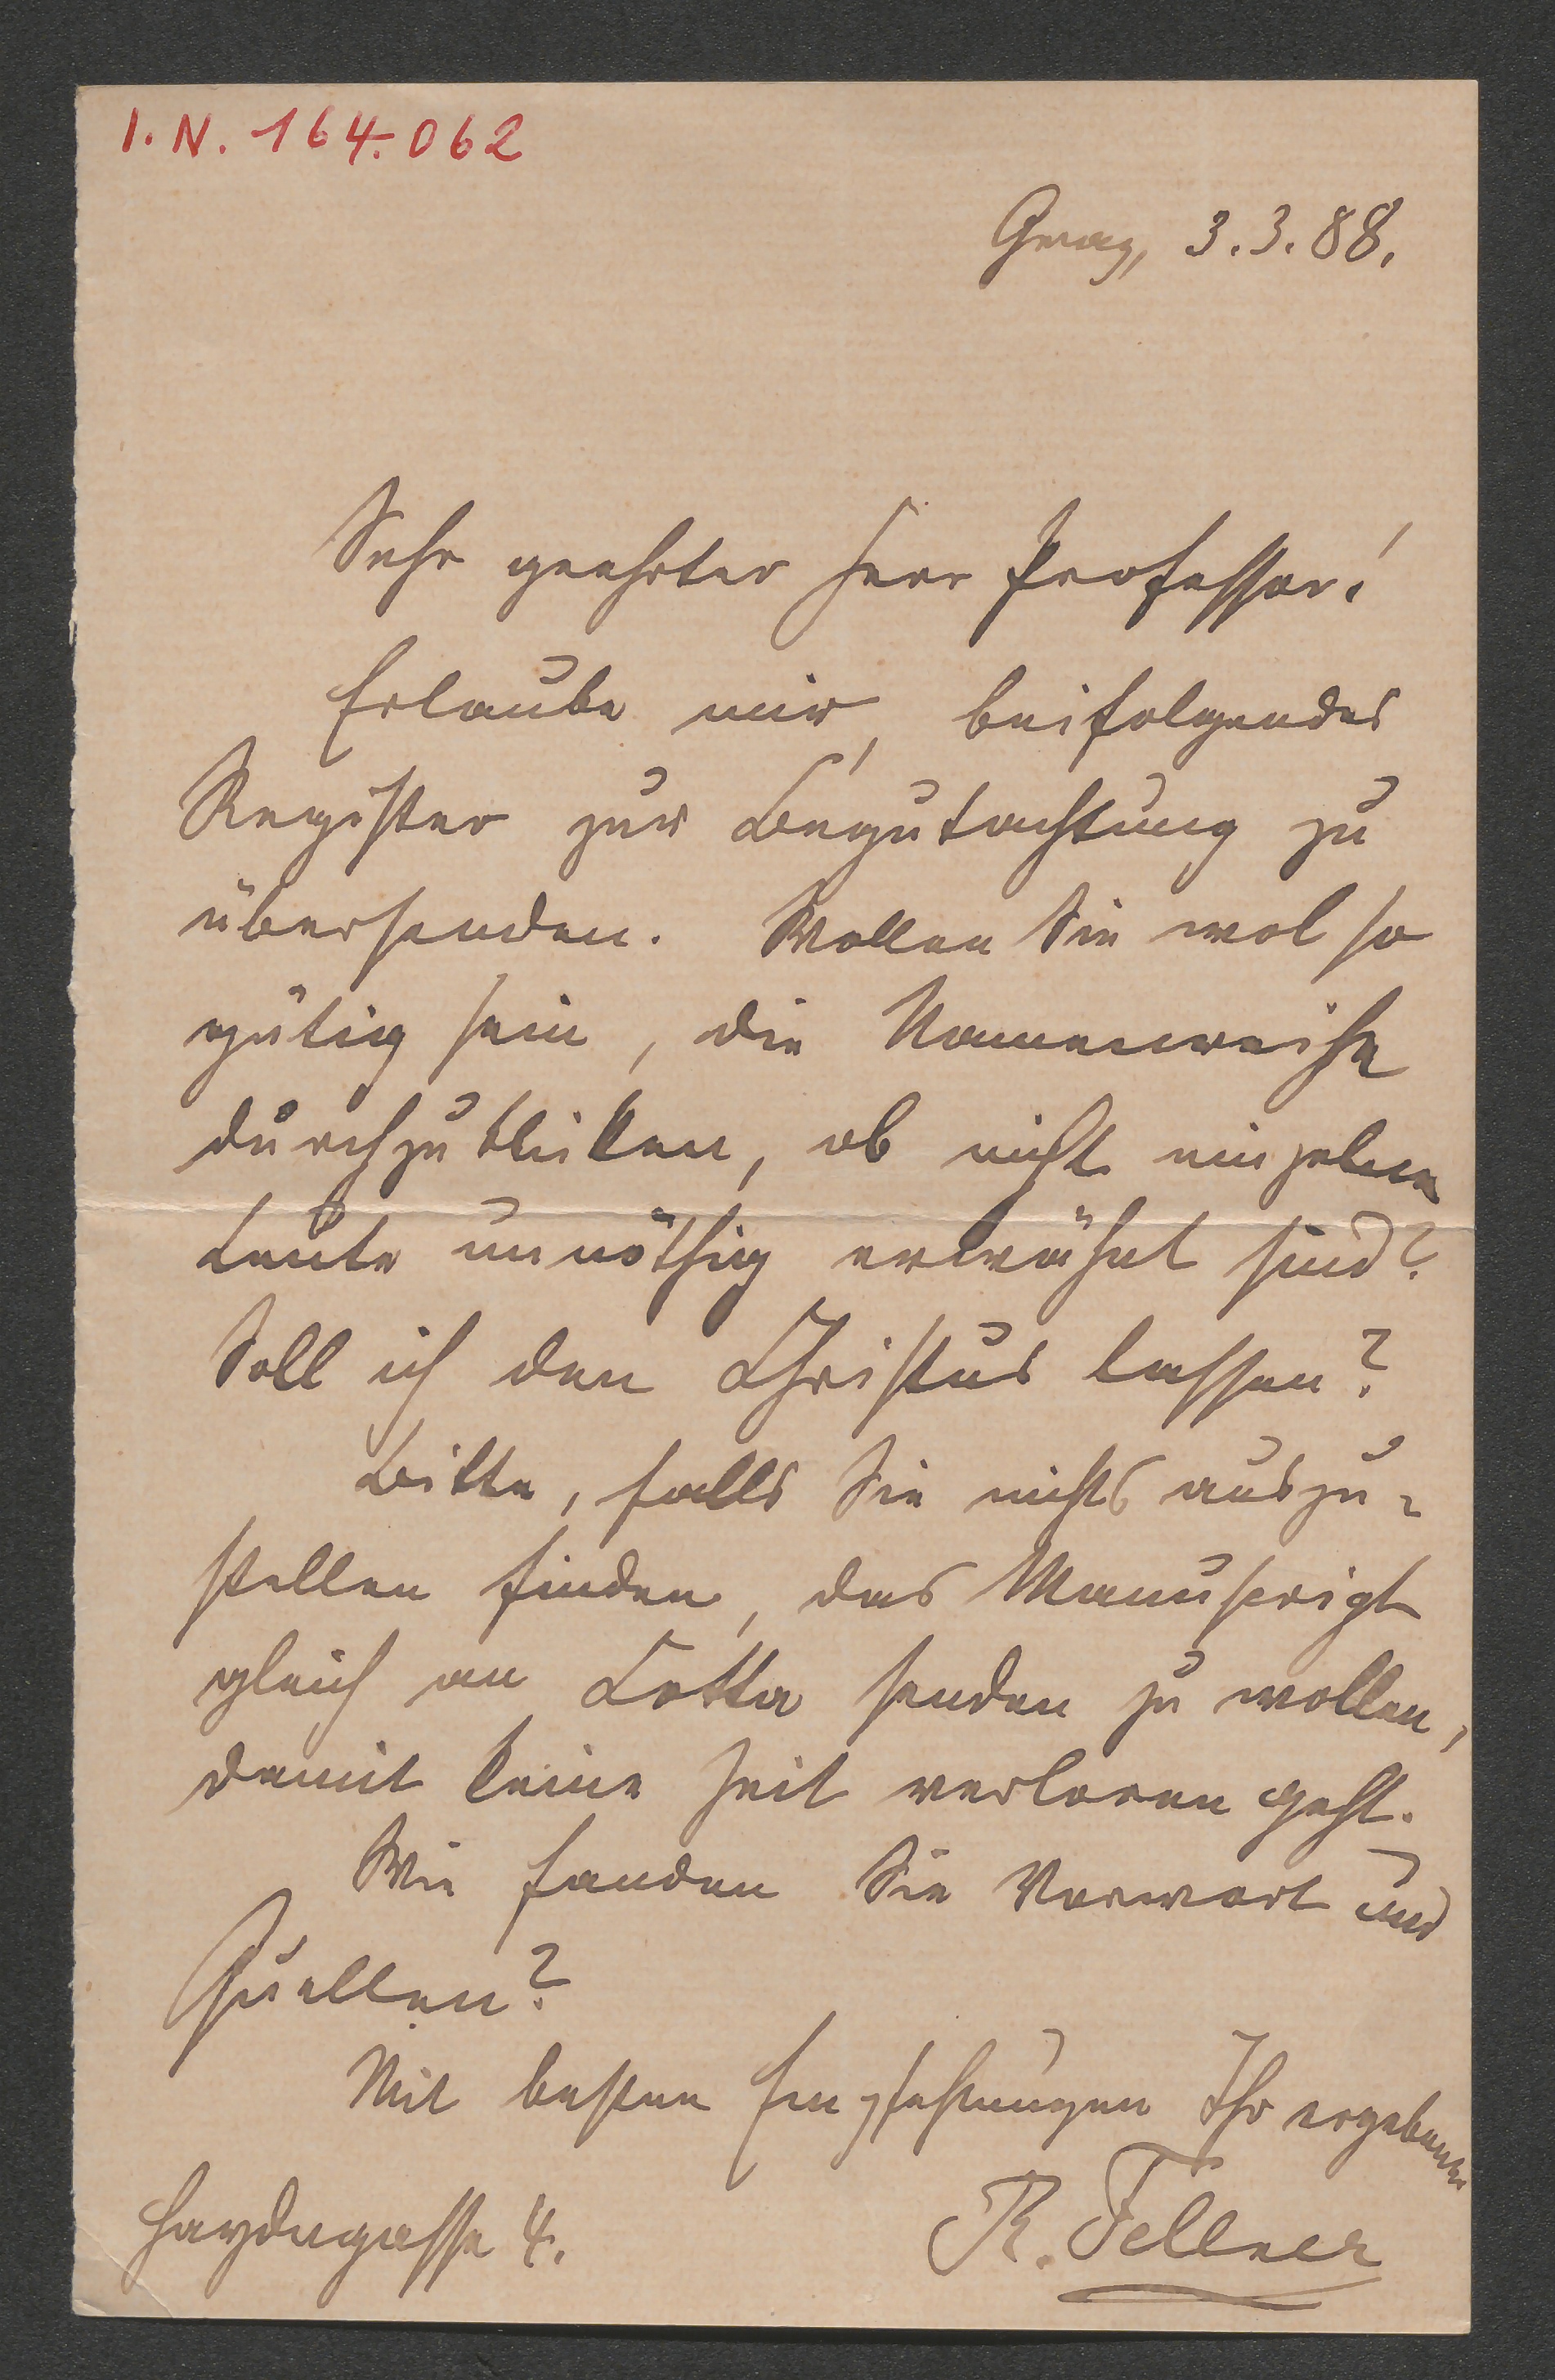 I. N. 164.062
Graz, 3.3.88.
Sehr geehrter Herr Professor!
Erlaube mir, beifolgendes
Register zur Begutachtung zu
übersenden. Wollen Sie wol so
gütig sein, die Namenreihe
durchzublicken, ob nicht einzelne
Leute unnöthig erwähnt sind?
Soll ich den Christus lassen?
Bitte, falls Sie nichts auszu=
stellen finden, das Manuscript
gleich an Cotta senden zu wollen,
damit keine Zeit verloren geht.
Wie fanden Sie Vorwort und
Quellen?
Mit besten Empfehlungen Ihr ergebenster
Haydngasse 4. R. Fellner